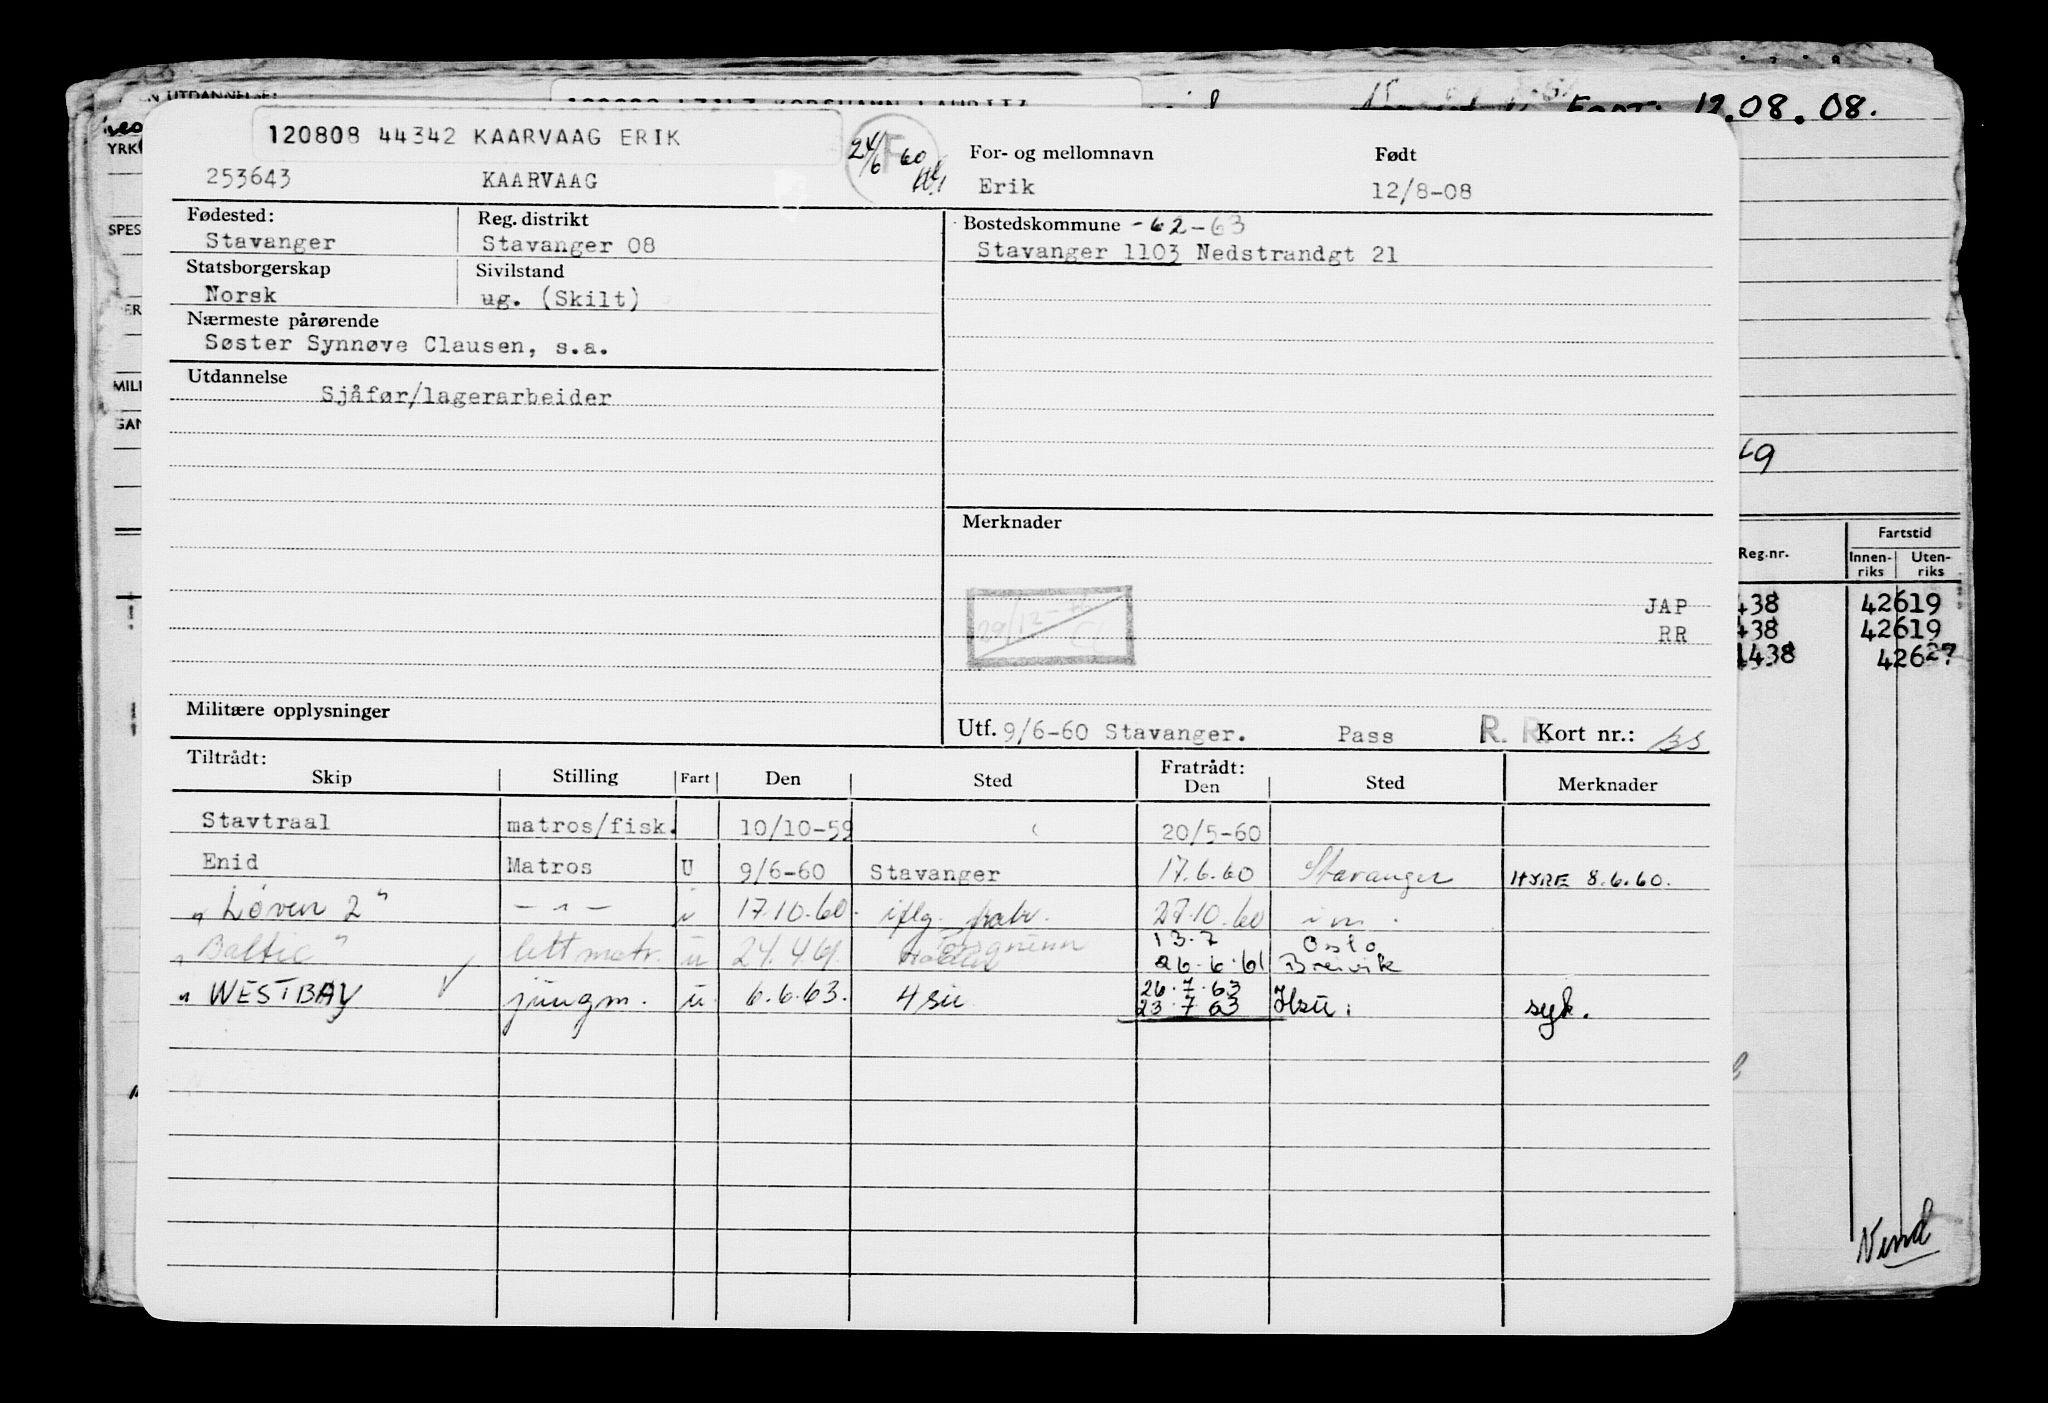 FØDT: 12.08.08.
120808 44342 KAARVAAG ERIK
24/6 60
F
For- og mellomnavn
Født
253643
KAARVAAG
Erik
12/8-08
Fødested:
Reg. distrikt
Bostedskommune -62-63
Stavanger
Stavanger 08
Stavanger 1103 Nedstrandgt 21
Statsborgerskap
Sivilstand
Norsk
ug. (Skilt)
Nærmeste pårørende
Søster Synnøve Clausen, s.a.
Utdannelse
Sjåfør/lagerarbeider
Merknader
JAP
RR
Militære opplysninger
Utf. 9/6-60 Stavanger.
Pass
R. R.
Kort nr.:
Tiltrådt:
Fratrådt:
Skip
Stilling
Fart
Den
Sted
Den
Sted
Merknader
Stavtraal matros/fisk. 10/10-59 20/5-60
Enid Matros U 9/6-60 Stavanger 17.6.60 Stavanger HYRE 8.6.60.
" Løven 2" - " - u 17.10.60. iflg. 27.10.60
13.7 Oslo
"Baltic" lettmatr. u 24.4.61. 26.6.61 Breivik
26.7.63
" WESTBAY jungm. u. 6.6.63. 23.7.63 syk.
YRK
SPES
MILI
Reg.nr.
Fartstid
Innen-
riks
Uten-
riks
438 42619
438 42619
4438 42627